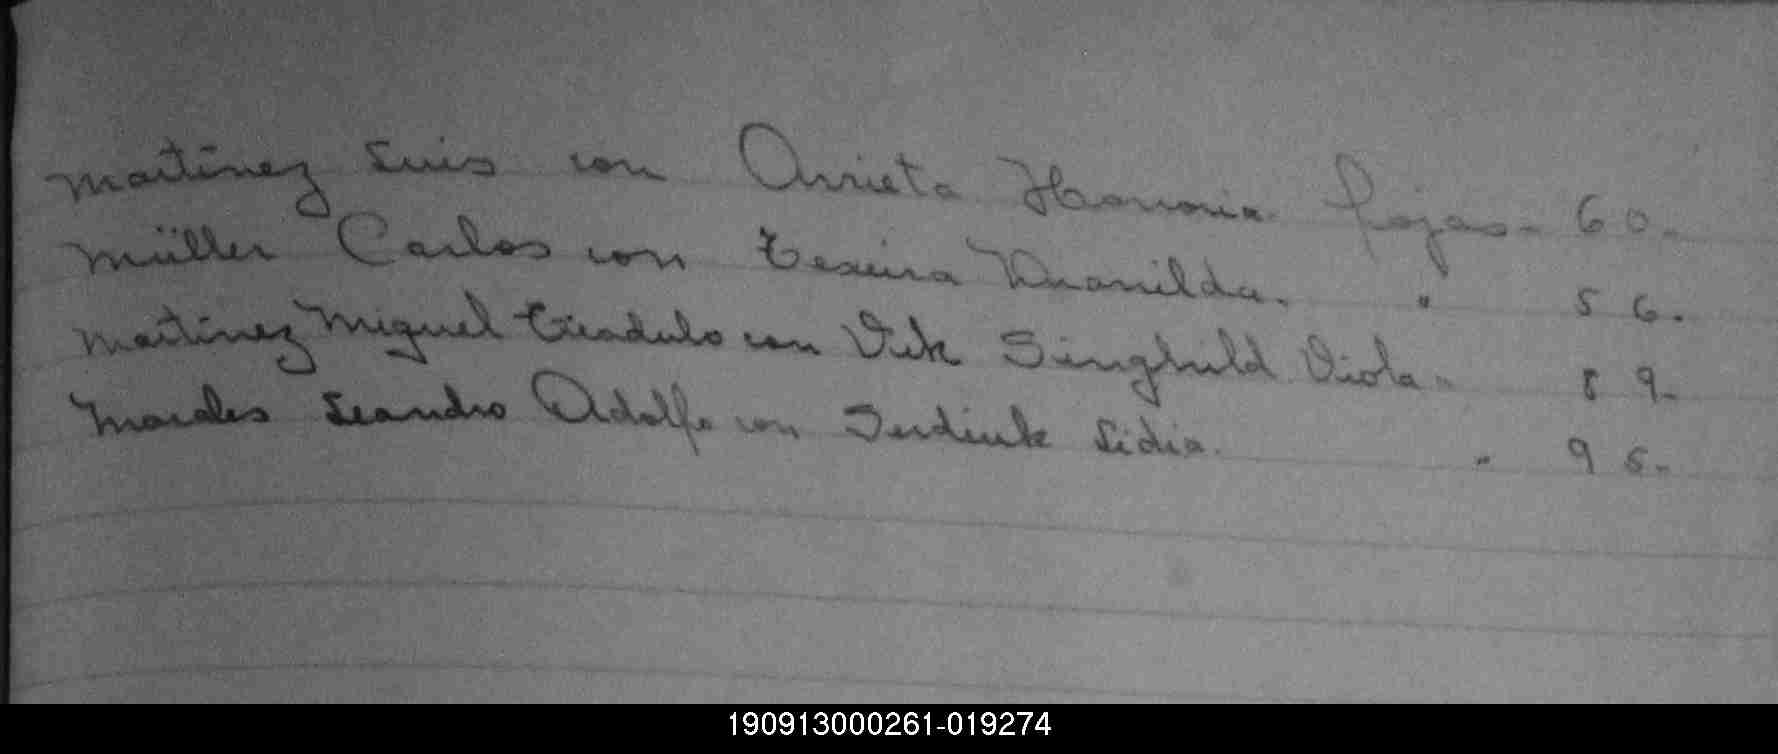 Martinez Luis con Arrieta Honoria fojas - 60.
Müller Carlos con Texeira Juanilda. " 56.
Martinez Miguel Tiradulo con Vik Singhild Viola " 89.
Morales Leandro Adolfo con Serdiuk Lidia. " 95.
190913000261-019274